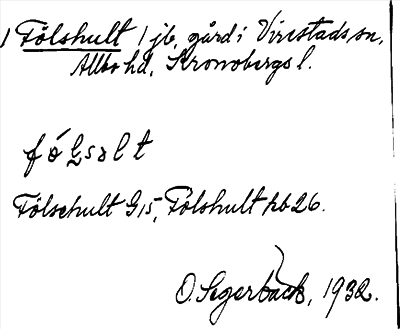 1 Fölshult 1 jb. gård i Virestads sn,
Allbo hd, Kronobergs l.
fó̤lsalt
Fölschult G15, Fölshult hb 26.
O. Segerbäck, 1932.